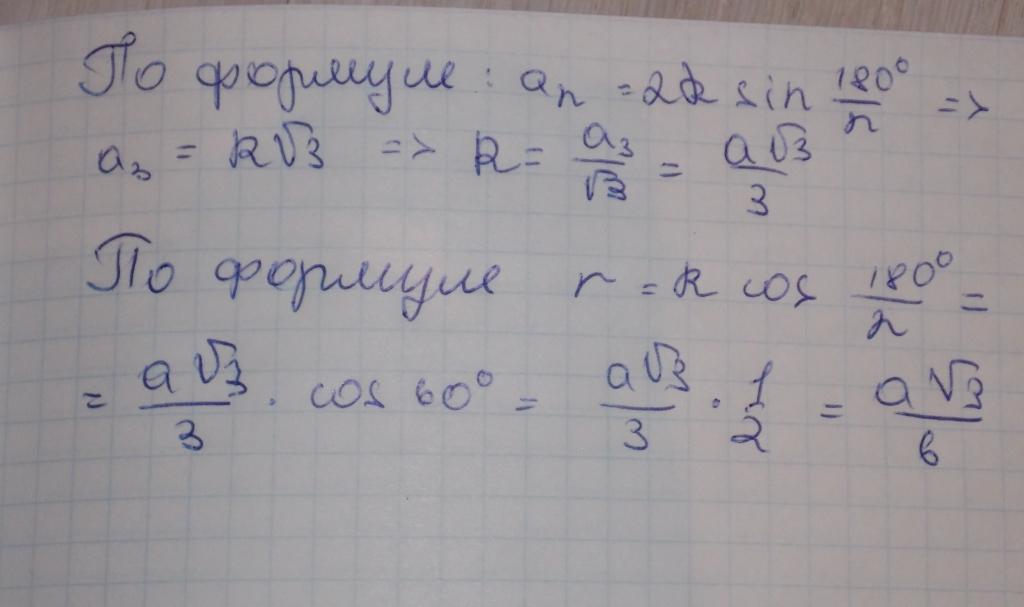 По формуле : aₙ = 2R sin 180°/n =>
a₃ = R√3 => R = a₃/√3 = a√3/3
По формуле r = R cos 180°/n =
= a√3/3 · cos 60° = a√3/3 · 1/2 = a√3/6